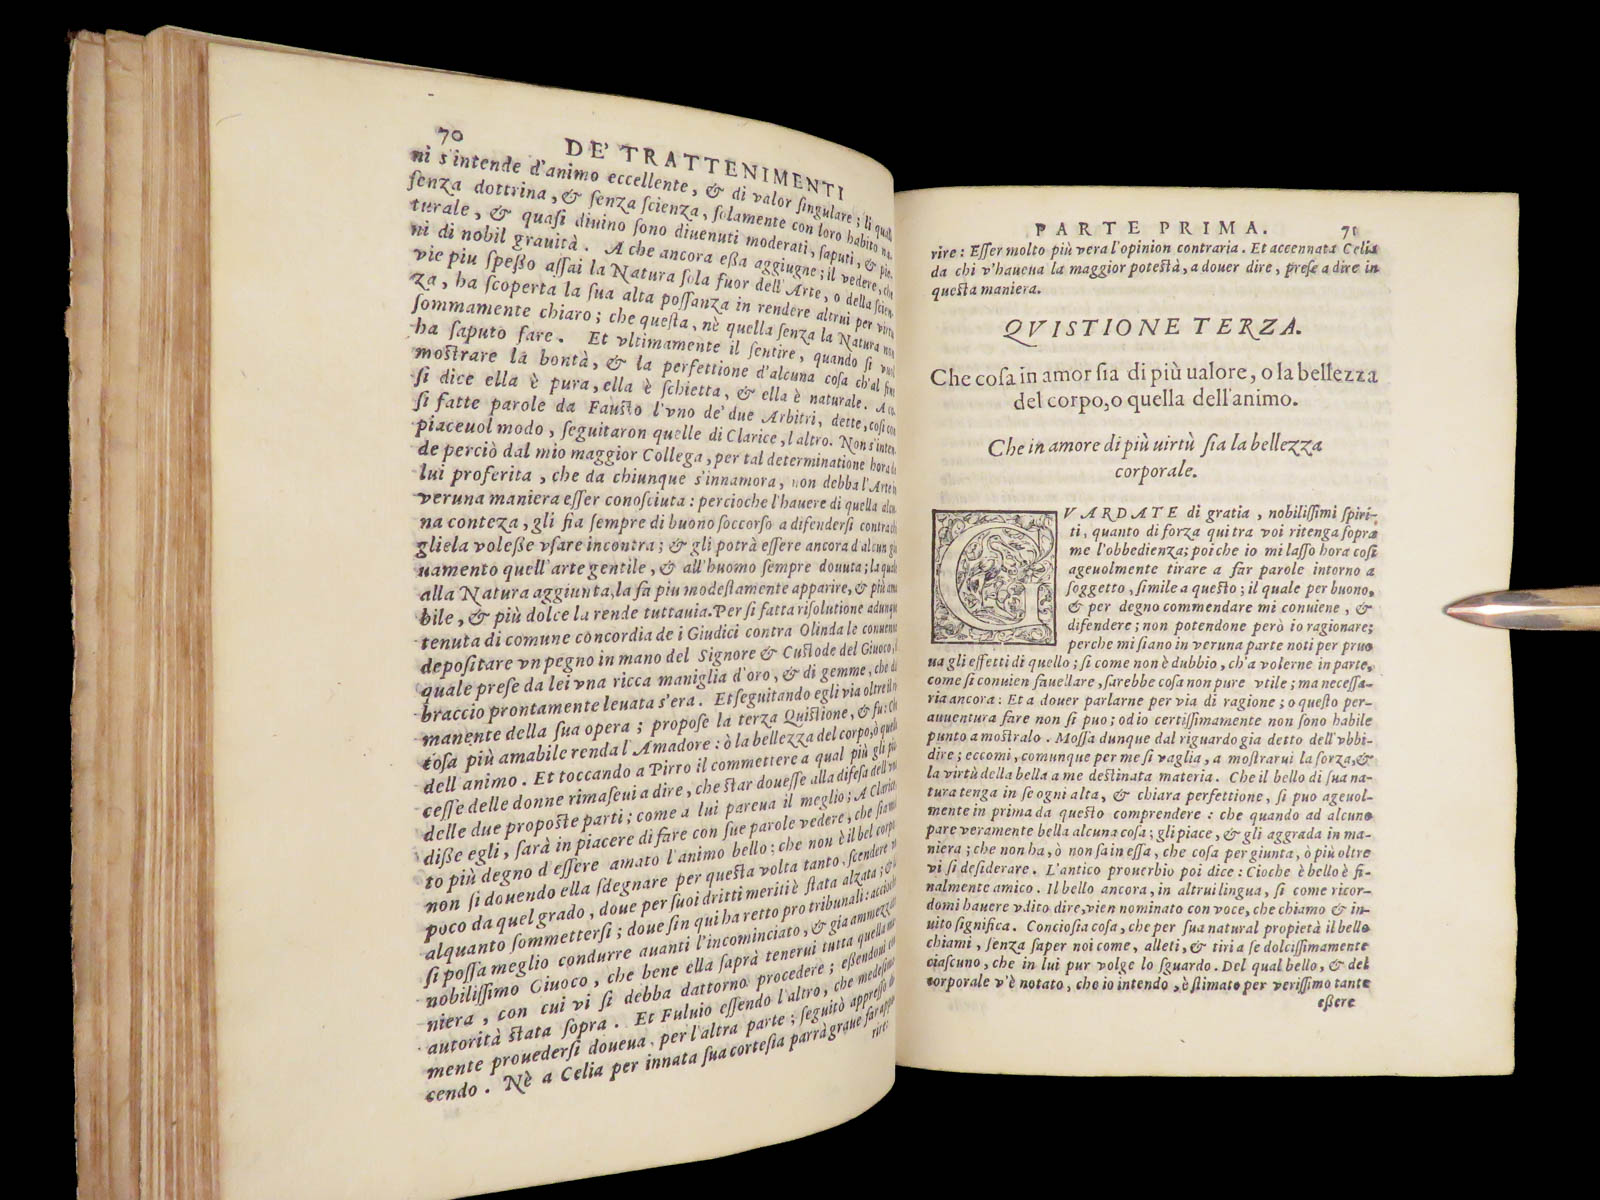 70
DE' TRATTENIMENTI
ni s'intende d'animo eccellente, & di valor ſingulare; li quali
ſenza dottrina, & ſenza ſcienza, ſolamente con loro habito na-
turale, & quaſi diuino ſono diuenuti moderati, ſaputi, & pie-
ni di nobil grauità. A che ancora eßa aggiugne; il vedere, che
vie piu ſpeßo aſſai la Natura ſola fuor dell'Arte, o della ſcien-
za, ha ſcoperta la ſua alta poſſanza in rendere altrui per virtu
ſommamente chiaro; che queſta, nè quella ſenza la Natura non
ha ſaputo fare. Et vltimamente il ſentire, quando ſi vuol
moſtrare la bontà, & la perfettione d'alcuna coſa ch'al fine
ſi dice ella è pura, ella è ſchietta, & ella è naturale. A co-
ſi fatte parole da Fauſto l'vno de' due Arbitri, dette, coſi con
piaceuol modo, ſeguitaron quelle di Clarice, l altro. Non s'inten-
de perciò dal mio maggior Collega, per tal determinatione hora da
lui proferita, che da chiunque s'innamora, non debba l'Arte in
veruna maniera eſſer conoſciuta: percioche l'hauere di quella alcu-
na conteza, gli fia ſempre di buono ſoccorſo a difenderſi contra chi
gliela voleße vſare incontra; & gli potrà eſſere ancora d'alcun gio-
uamento quell'arte gentile, & all'huomo ſempre douuta; la quale
alla Natura aggiunta, la fa piu modeſtamente apparire, & più ama-
bile, & più dolce la rende tuttauia. Per ſi fatta riſolutione adunque
tenuta di comune concordia de i Giudici contra Olinda le conuenne
depoſitare vn pegno in mano del Signore & Cuſtode del Giuoco, il
quale preſe da lei vna ricca maniglia d'oro, & di gemme, che di
braccio prontamente leuata s'era. Et ſeguitando egli via oltre il ri-
manente della ſua opera; propoſe la terza Quiſtione, & fu: Che
coſa più amabile renda l'Amadore: ò la bellezza del corpo, ò quella
dell'animo. Et toccando a Pirro il commettere a qual più gli pia-
ceſſe delle donne rimaſeui a dire, che ſtar doueſſe alla difeſa dell'vna
delle due propoſte parti; come a lui pareua il meglio; A Clarice,
diße egli, ſarà in piacere di fare con ſue parole vedere, che ſia mol-
to più degno d'eſſere amato l'animo bello; che non è il bel corpo
non ſi douendo ella ſdegnare per queſta volta tanto ſcendere vn
poco da quel grado, doue per ſuoi dritti meriti è ſtata alzata; &
alquanto ſommetterſi; doue ſin qui ha retto pro tribunali: accioche
ſi poſſa meglio condurre auanti l'incominciato, & gia ammezzato
nobiliſſimo Giuoco, che bene ella ſaprà tenerui tutta quella ma-
niera, con cui vi ſi debba dattorno procedere; eßendoui con
autorità ſtata ſopra. Et Fuluio eſſendo l'altro, che medeſima-
mente prouederſi doueua, per l'altra parte; ſeguitò appreſſo di-
cendo. Nè a Celia per innata ſua corteſia parrà graue far appa-
rire:
PARTE PRIMA. 71
rire: Eſſer molto più vera l'opinion contraria. Et accennata Celia
da chi v'haueua la maggior poteſtà, a douer dire, preſe a dire in
queſta maniera.
QVISTIONE TERZA.
Che coſa in amor ſia di più ualore, o la bellezza
del corpo, o quella dell'animo.
Che in amore di più uirtù ſia la bellezza
corporale.
GVARDATE di gratia, nobiliſſimi ſpiri-
ti, quanto di forza qui tra voi ritenga ſopra
me l'obbedienza; poiche io mi laſſo hora coſi
ageuolmente tirare a far parole intorno a
ſoggetto, ſimile a queſto; il quale per buono,
& per degno commendare mi conuiene, &
difendere; non potendone però io ragionare;
perche mi ſiano in veruna parte noti per pruo
ua gli effetti di quello; ſi come non è dubbio, ch'a volerne in parte,
come ſi conuien fauellare, ſarebbe coſa non pure vtile; ma neceſſa-
ria ancora: Et a douer parlarne per via di ragione; o queſto per-
auuentura fare non ſi puo; od io certiſſimamente non ſono habile
punto a moſtralo. Moſſa dunque dal riguardo gia detto dell'vbbi-
dire; eccomi, comunque per me ſi vaglia, a moſtrarui la forza, &
la virtù della bella a me deſtinata materia. Che il bello di ſua na-
tura tenga in ſe ogni alta, & chiara perfettione, ſi puo ageuol-
mente in prima da queſto comprendere: che quando ad alcuno
pare veramente bella alcuna coſa; gli piace, & gli aggrada in ma-
niera; che non ha, ò non ſa in eſſa, che coſa per giunta, ò più oltre
vi ſi deſiderare. L'antico prouerbio poi dice: Cioche è bello è fi-
nalmente amico. Il bello ancora, in altrui lingua, ſi come ricor-
domi hauere vdito dire, vien nominato con voce, che chiamo & in-
uito ſignifica. Concioſia coſa, che per ſua natural propietà il bello
chiami, ſenza ſaper noi come, alleti, & tiri a ſe dolciſſimamente
ciaſcuno, che in lui pur volge lo ſguardo. Del qual bello, & del
corporale v'è notato, che io intendo, è ſtimato per veriſſimo tante
eßere